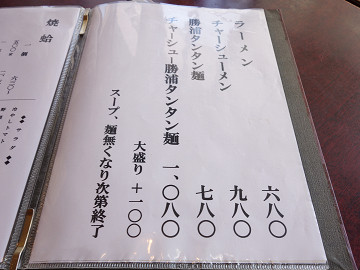 ラーメン 六八〇
チャーシューメン 九八〇
勝浦タンタン麺 七八〇
チャーシュー勝浦タンタン麺 一、〇八〇
大盛り +一〇〇
スープ、麺無くなり次第終了
焼蛤
サラダ
冷やしトマト